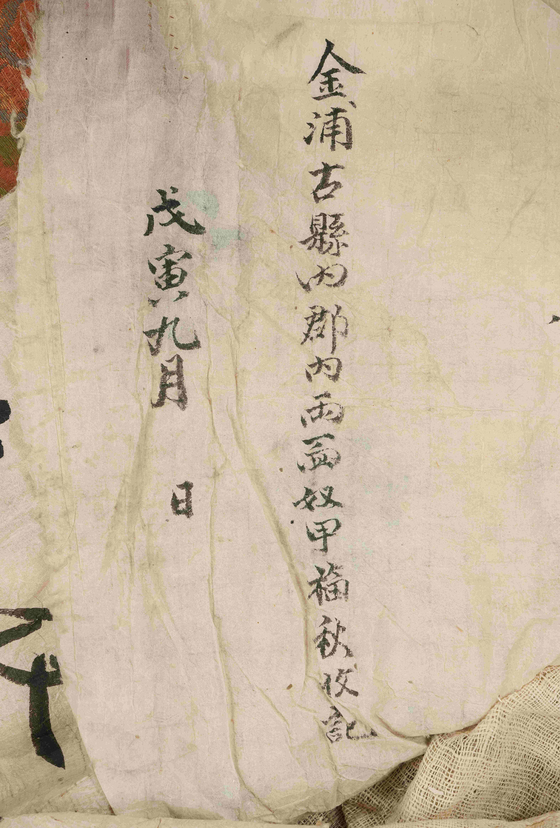 金浦古縣內郡內兩面奴甲福秋收記
戊寅九月　日